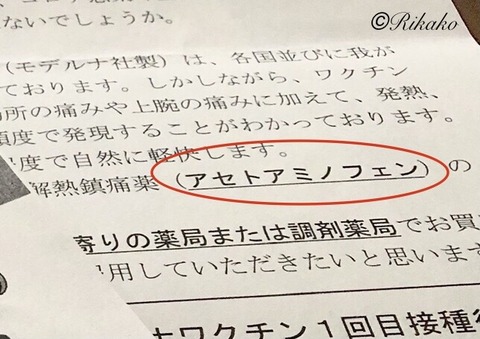 ©Rikako
ないでしょうか。
(モデルナ社製)は、各国並びに我が
ております。しかしながら、ワクチン
所の痛みや上腕の痛みに加えて、発熱、
頻度で発現することがわかっております。
程度で自然に軽快します。
解熱鎮痛薬(アセトアミノフェン)の
寄りの薬局または調剤薬局でお買
用していただきたいと思います
ワクチン1回目接種後